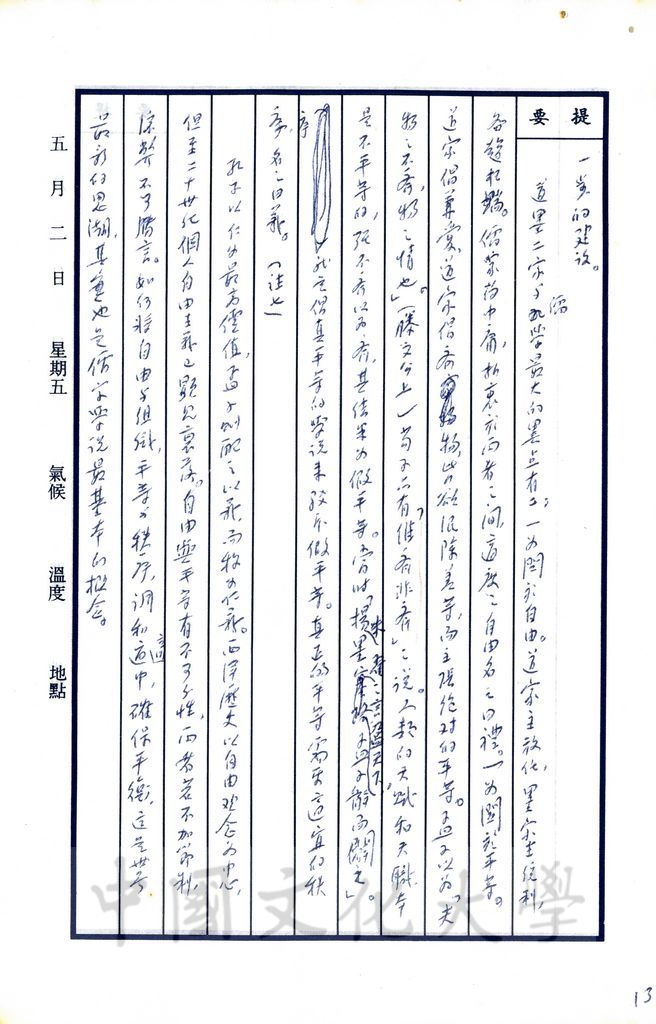 提要
一步的建設。
道墨二家與儒學最大的異点有二。一为関於自由。道家主放任，墨家主統制，
各趨極端。儒家尚中庸，折衷於兩者之間，適度之自由名之曰禮。一为関於平等。
道家倡兼愛，道家倡齊物，皆欲泯除差等，而主張絕对的平等。孟子以为「夫
物之不齊，物之情也」。（滕文公上）荀子亦有「維齊非齊」之說。人類的天賦和天職本
是不平等的，強不齊以为齊，其結果为假平等。當时「楊朱墨翟之言盈天下，孟子辭而闢之」。
我主倡真平等的學說来駁斥假平等。真正的平等需要適宜的秩
序，名之曰義。（註七）
孔子以仁为最高價值，孟子則配之以義，而稱为仁義。西洋歷史以自由观念为中心，
但至二十世纪個人自由主義已顯見衰落。自由與平等有不可分性，兩者若不加節制，
流弊不可勝言。如何将自由与組織，平等与秩序，調和適中，確保平衡，這是世界
最新的思潮，其實也是儒家學說最基本的概念。
五月二日 星期五 氣候 溫度 地點
中國文化大學
13